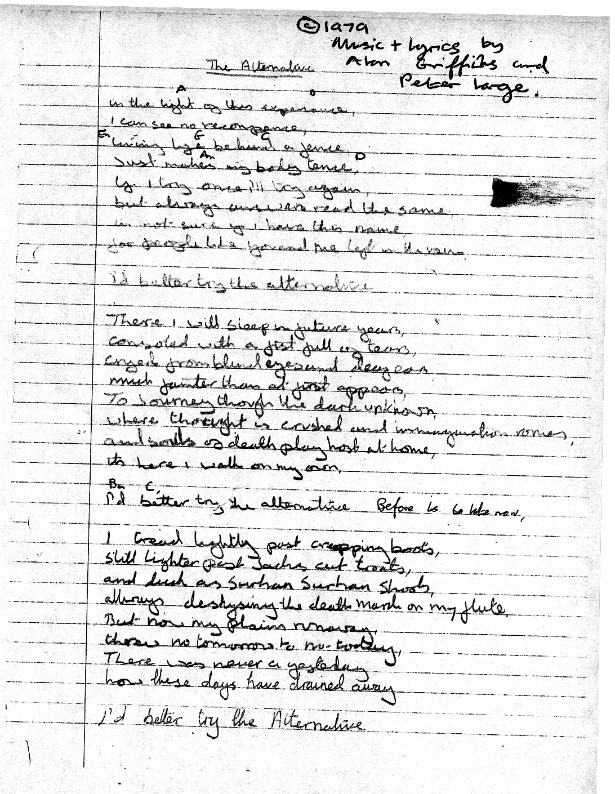 © 1979
Music + lyrics by
Alan Griffiths and
Peter Large.
The Alternative
A D
in the light of this experience,
I can see no recompence,
Em G C
Living life behind a fence
Am D
Just makes my body tence,
if I try once I'll try again,
but always answers read the same,
im not sure if I have this name
for people like you and me left in the rain.
I'd better try the alternative
There I will sleep in future years,
consoled with a fist full of tears,
cryed from blind eyes and deaf ears
much fainter than at first appears,
To Journey though the dark unknown,
where thought is crushed and immagination romes,
and souls of death play host at home,
its here I walk on my own,
Bm C
I'd better try the alternative Before its to late now,
I tread lightly past crapping boots,
still lighter past Jacks cut troats,
and duck as Surhan Surhan Shoots,
always the death march on my flute,
But now my plains runaway,
theres no tomorrow to no-today,
There was never a yesterday
how these days have drained away
I'd better try the Alternative